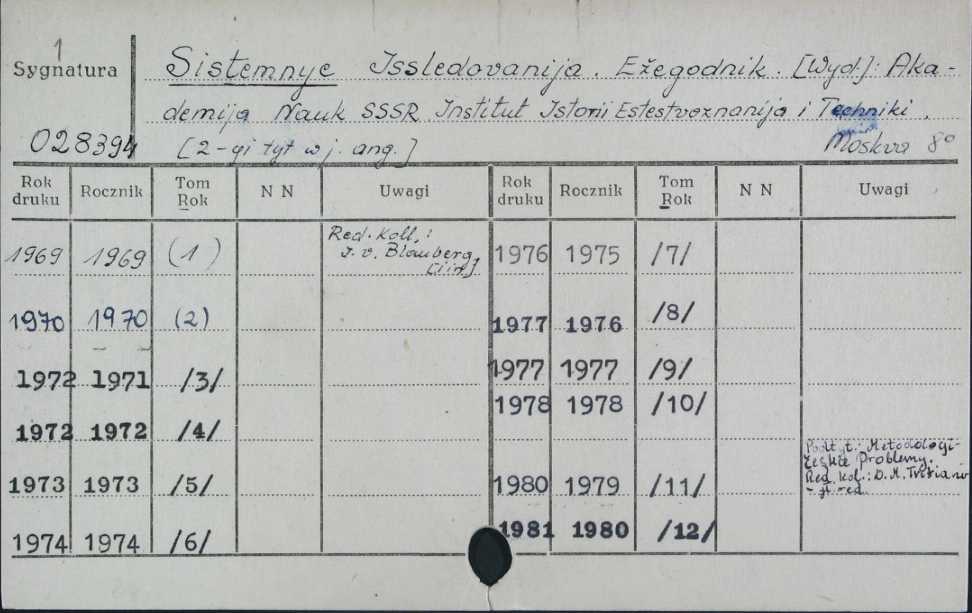 1
Sygnatura
Sistemnye Issledovanija. Ežegodnik. [Wyd.]: Aka-
demija Nauk SSSR. Institut Istorii Estestvoznanija i Techniki.
028394
[2-gi tyt w j. ang.]
Moskva 8°
Rok druku Rocznik Tom Rok N N Uwagi Rok druku Rocznik Tom Rok N N Uwagi
1969 1969 (1) Red. Koll.: I. v. Blauberg, [i in.] 1976 1975 /7/
1970 1970 (2) 1977 1976 /8/
1972 1971 /3/ 1977 1977 /9/
1978 1978 /10/
1972 1972 /4/
Podtyt.: Metodologi-
českie problemy.
Red. Kol.: D. M.
- gł. red.
1973 1973 /5/ 1980 1979 /11/
1974 1974 /6/ 1981 1980 /12/